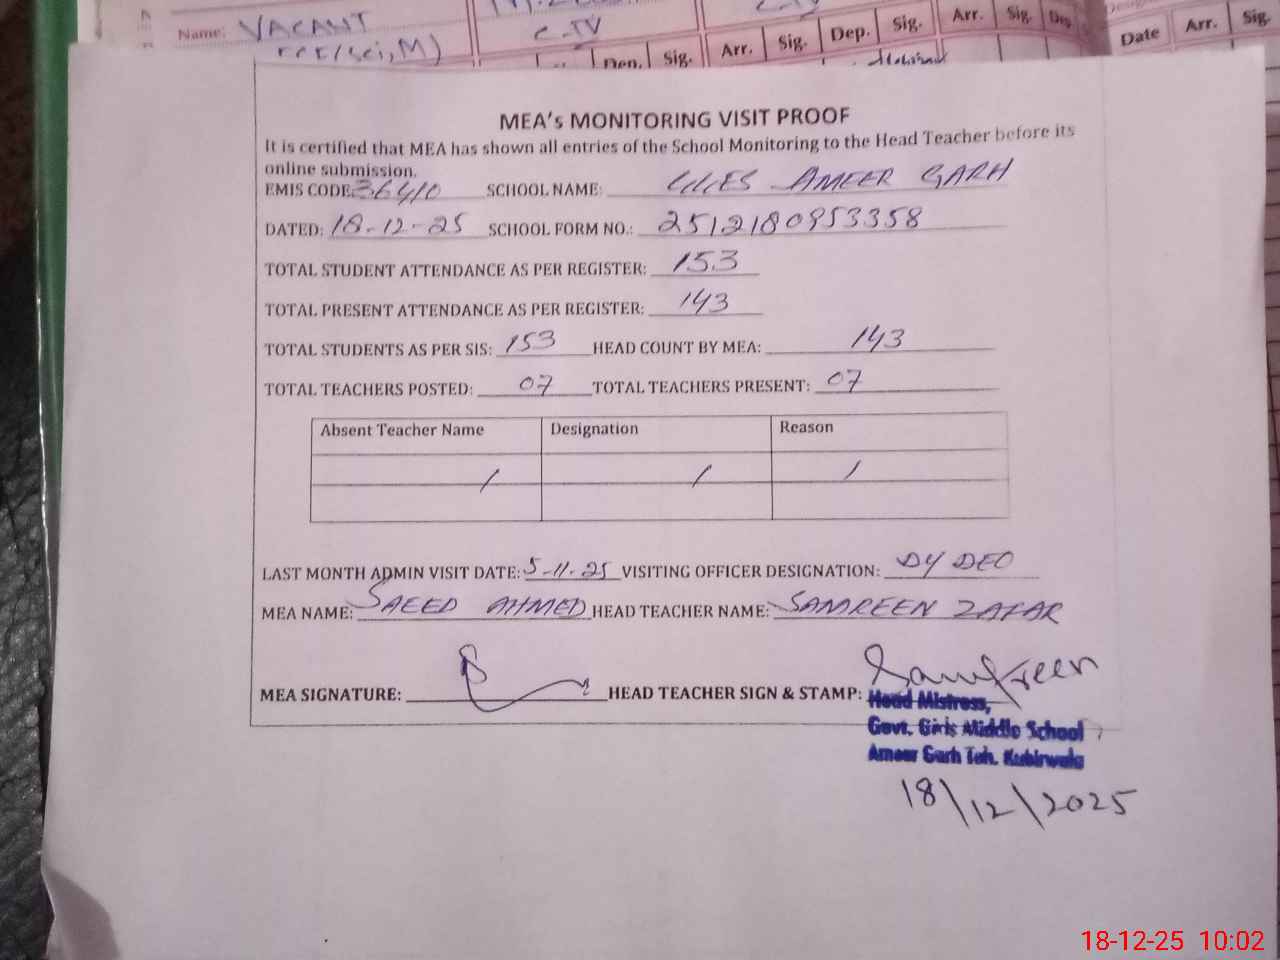 Name: VACANT
C-TV
Dep. Sig. Arr. Sig. Dep. Sig. Arr. Sig. Date Arr. Sig.
MEA's MONITORING VISIT PROOF
It is certified that MEA has shown all entries of the School Monitoring to the Head Teacher before its
online submission.
EMIS CODE: 36410 SCHOOL NAME: AMEER GARH
DATED: 18-12-25 SCHOOL FORM NO.: 2512180953358
TOTAL STUDENT ATTENDANCE AS PER REGISTER: 153
TOTAL PRESENT ATTENDANCE AS PER REGISTER: 143
TOTAL STUDENTS AS PER SIS: 153 HEAD COUNT BY MEA: 143
TOTAL TEACHERS POSTED: 07 TOTAL TEACHERS PRESENT: 07
Absent Teacher Name Designation Reason
/ / /
LAST MONTH ADMIN VISIT DATE: 5-11-25 VISITING OFFICER DESIGNATION: DY DEO
MEA NAME: SAEED AHMED HEAD TEACHER NAME: SAMREEN ZAFAR
MEA SIGNATURE: HEAD TEACHER SIGN & STAMP: Samreen
Head Mistress,
Govt. Girls Middle School
Ameer Garh Teh. Kabirwala
18/12/2025
18-12-25 10:02